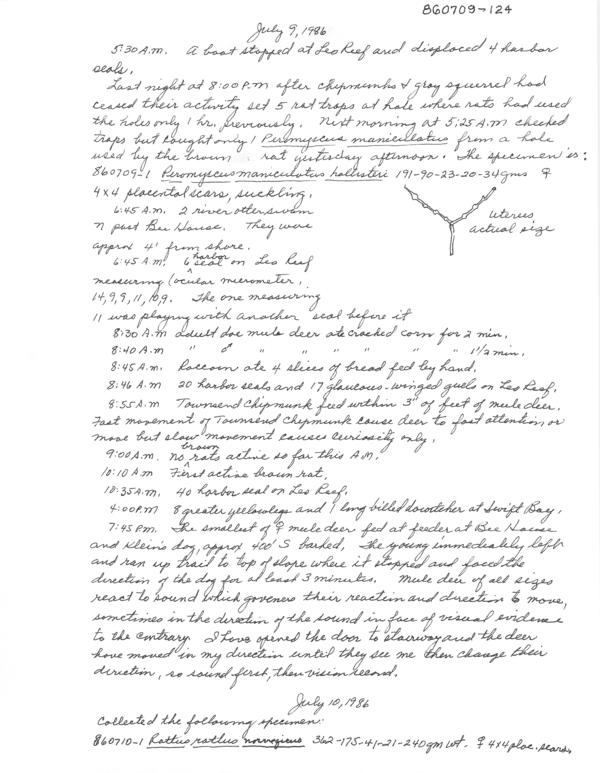 860709-124
July 9, 1986
5:30 A.M. A boat stopped at Leo Reef and displaced 4 harbor
seals.
Last night at 8:00 P.M after chipmunks & gray squirrel had
ceased their activity set 5 rat traps at hole where rats had used
the holes only 1 hr. previously. Next morning at 5:25 A.M checked
traps but caught only 1 Peromyscus maniculatus from a hole
used by the brown rat yesterday afternoon. The specimen is:
860709-1 Peromyscus maniculatus hollisteri 191-90-23-20-34gms ♀
4x4 placental scars, suckling.
uterus,
actual size
6:45 A.M. 2 river otter swam
N past Bee House. They were
approx 4' from shore.
6:45 A.M. 6 harbor seal on Leo Reef
measuring (ocular micrometer,
14, 9, 9, 11, 10, 9. The one measuring
11 was playing with another seal before it
8:30 A.M adult doe mule deer ate cracked corn for 2 min.
8:40 A.M " ♂ " " " " " " 1 1/2 min.
8:45 A.M. Raccoon ate 4 slices of bread fed by hand.
8:46 A.M 20 harbor seals and 17 glaucous-winged gulls on Leo Reef.
8:55 A.M Townsend Chipmunk feed within 3" of feet of mule deer.
Fast movement of Townsend Chipmunk cause deer to fast attention, or
move but slow movement causes curiosity only.
9:00 A.M. no brown rats active so far this A.M.
10:10 A.M First active brown rat.
10:35 A.M. 40 harbor seal on Leo Reef.
4:00 P.M 8 greater yellowlegs and 1 long billed dowitcher at Swift Bay.
7:45 P.M. The smallest of ♀ mule deer fed at feeder at Bee House
and Klein's dog, approx 400' S barked. The young immediately left
and ran up trail to top of slope where it stopped and faced the
direction of the dog for at least 3 minutes. Mule deer of all sizes
react to sound which goveners their reaction and direction to move,
sometimes in the direction of the sound in face of visual evidence
to the contrary. I have opened the door to stairway and the deer
have moved in my direction until they see me then change their
direction, so sound first, then vision second.
July 10, 1986
Collected the following specimen:
860710-1 Rattus rattus norvegicus 362-175-41-21-240gm wt. ♀ 4x4 plac. scars.